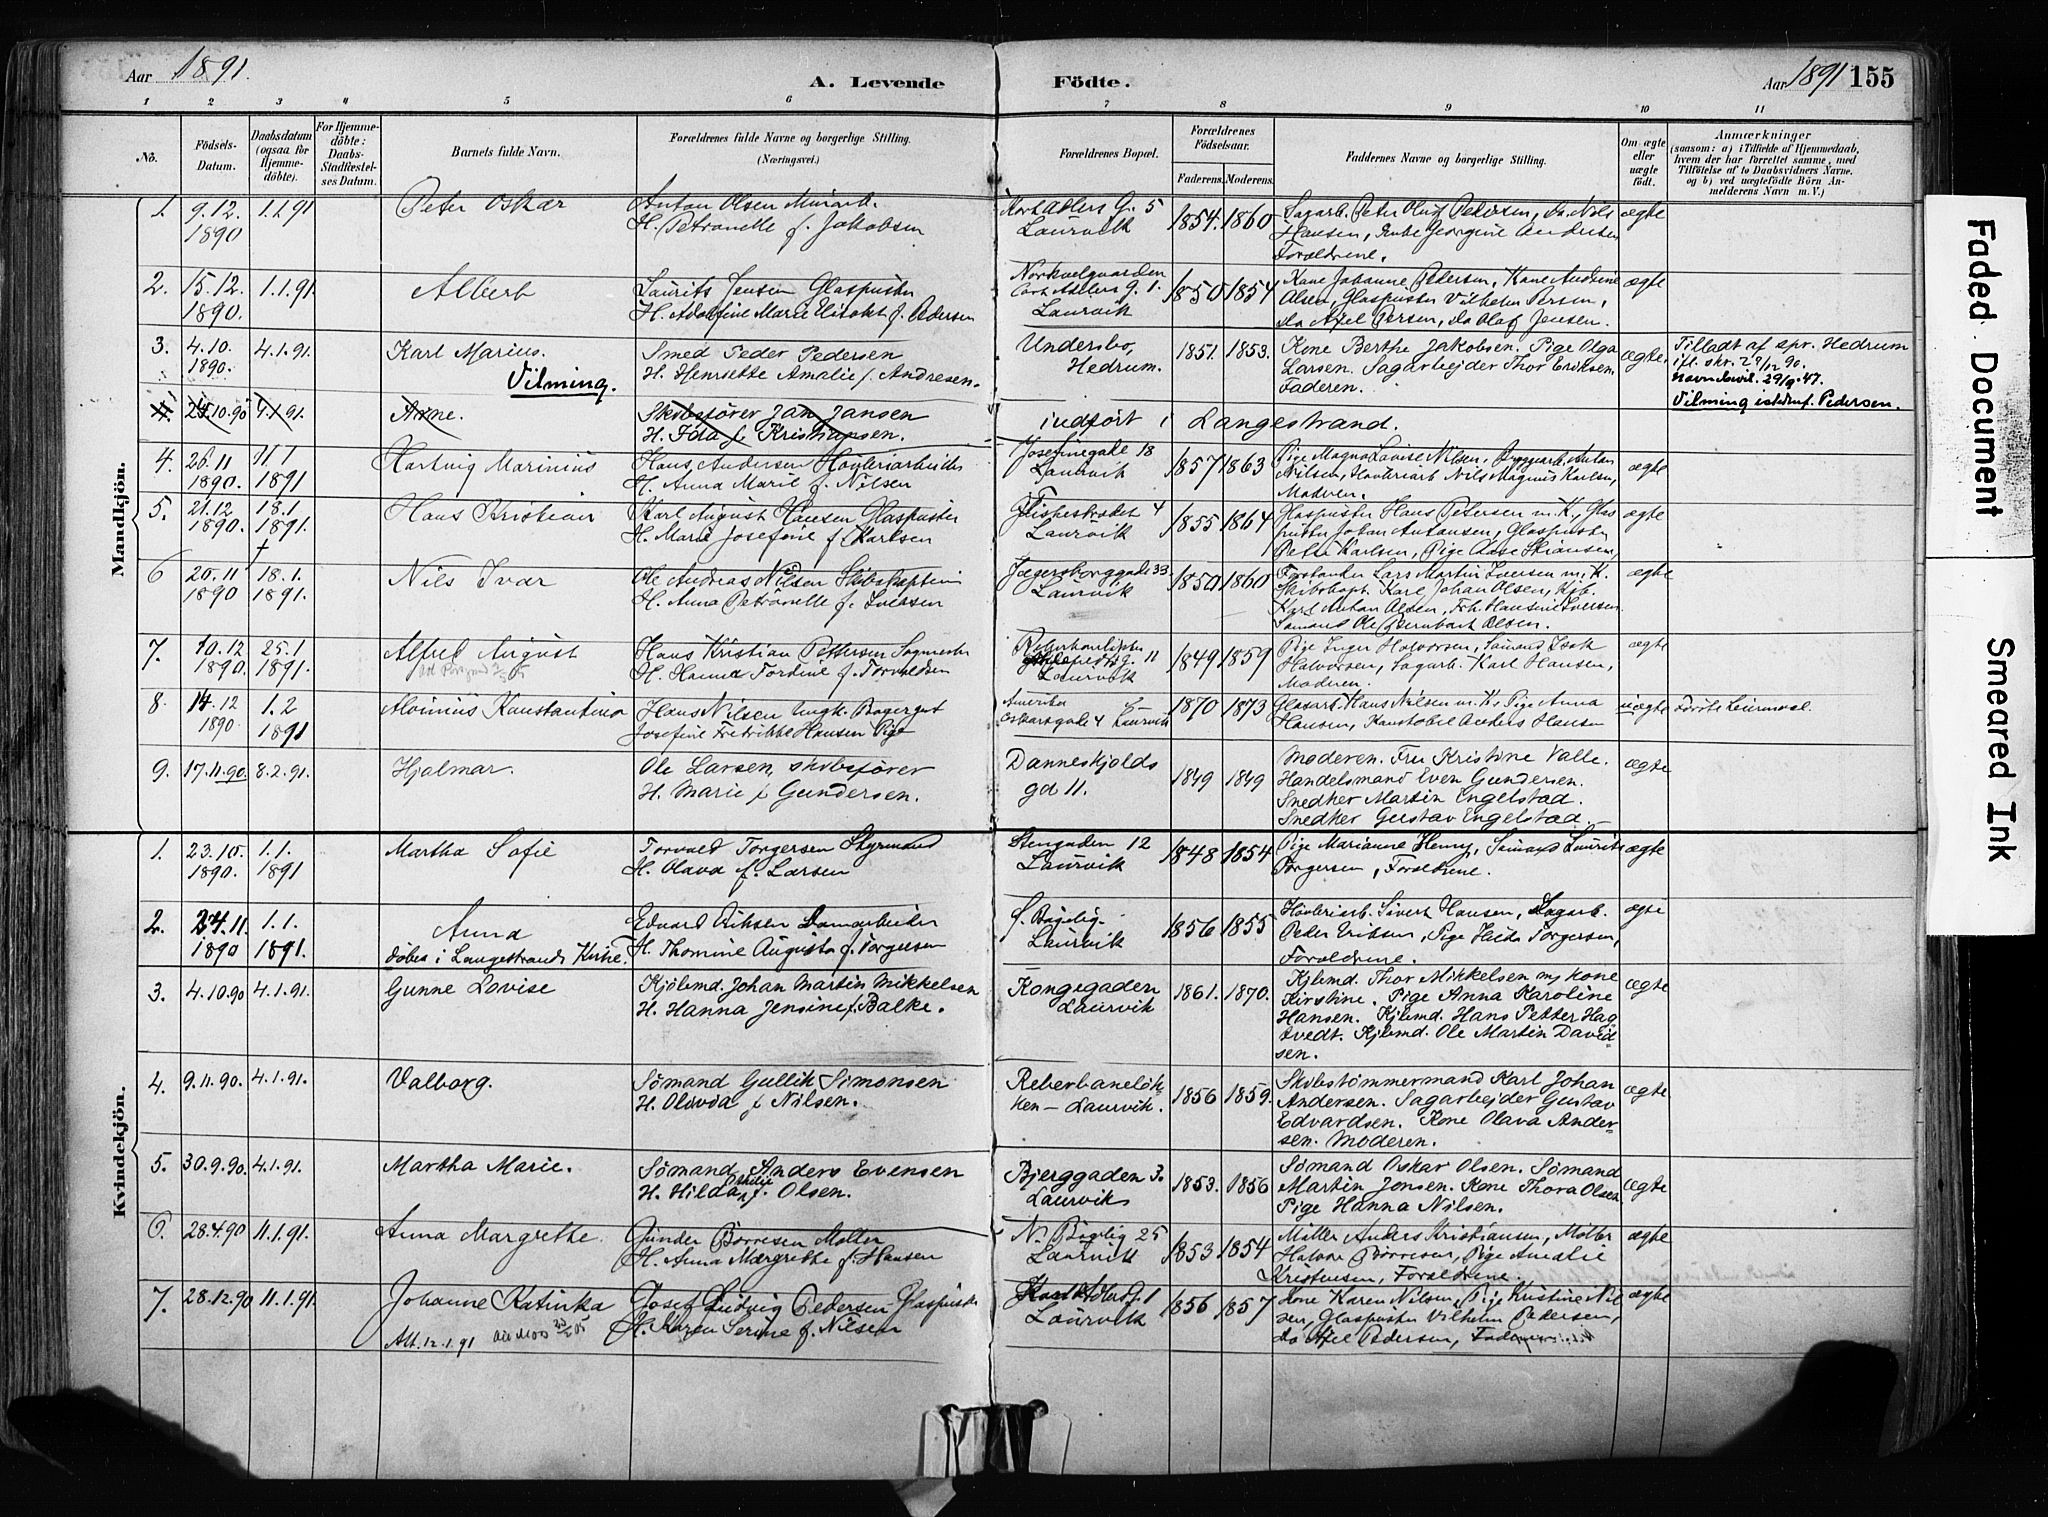 Aar 1891.
A. Levende
Födte.
Aar 1891 155
1 2 3 4 5 6 7 8 9 10 11
No.
Födsels-Datum.
Daabsdatum (ogsaa for Hjemme-döbte).
For Hjemme-döbte: Daabs-Stadfæstel-ses Datum.
Barnets fulde Navn.
Forældrenes fulde Navne og borgerlige Stilling. (Næringsvei.)
Forældrenes Bopæl.
Forældrenes Födselsaar.
Faderens. Moderens.
Faddernes Navne og borgerlige Stilling.
Om ægte eller uægte födt.
Anmærkninger
(saasom: a) i Tilfælde af Hjemmedaab,
hvem der har forrettet samme, med
Tilföielse af to Daabsvidners Navne,
og b) ved uægtefödte Börn An-
melderens Navn m. V.)
Mandkjön.
1. 9.12. 1890 1.1.91 Peter Oskar
Anton Olsen Murarb.
H. Petronelle f. Jakobsen
Kort Adlers G. 5
Laurvik
1854. 1860
Sagarb. Peter Oluf Pedersen, Do Nils
Hansen, Enke Georgine Andersen
Foreldrene.
ægte
2. 15.12. 1890. 1.1.91. Albert
Laurits Jensen Glaspuster
H. Adolfine Marie Elisabt f. Pedersen
Cort Adelers G. 1.
Laurvik
1850 1854
Kone Johanne Pedersen, Kone Andrine
Olsen, Glaspuster Vilhelm Persen,
do Axel Persen, do Olaf Jensen.
ægte
3. 4.10. 1890. 4.1.91. Karl Marius.
Vilming.
Smed Peder Pedersen
H. Henriette Amalie f. Andresen.
Undersbo,
Hedrum.
1851. 1853.
Kone Berthe Jakobsen. Pige Olga
Larsen. Sagarbejder Thor Eriksen
Faderen.
ægte.
Tilladt af spr. Hedrum
ifl. skr. 29/12 90.
Navnebevil. 29/9.47.
Vilming istedenf. Pedersen.
4. 25.10.90 4.1.91. Arne.
Skibsfører Jan Jansen
H. Ida f. Kristiansen.
indført i Langestrand.
4. 26.11 1890. 11/1 1891 Hartvig Marinius
Hans Andersen Høvleriarbeider
H. Anna Marie f. Nilsen
Josefinegade 18
Laurvik
1857 1863
Pige Magna Lovise Nilsen, Byggearb. Anton
Nilsen, Høvleriarb Nils Magnus Karlsen,
Moderen.
ægte
5. 21.12 1890. 18.1. 1891. Hans Kristian
Karl August Hansen Glaspuster
H. Marie Josefine f. Karlsen
4
Laurvik
1855 1864
Glaspuster Hans Petersen m. K., Glas
puster Johan Antonsen, Glaspuster
Peter Karlsen, Pige Aase
ægte
6 20.11 1890 18.1. 1891. Nils Ivar
Ole Andreas Nilsen Skibskaptein
H. Anna Petronelle f. Iversen
Jægersborggade 33
Laurvik
1850 1860
Forstander Lars Martin Iversen m. K.
Skibskapt. Karl Johan Olsen, Kjb.
Karl Anton Olsen, Frk. Hansine Iversen
Sømand Ole Olsen.
ægte
7. 10.12 1890. 25.1 1891. Alfred August
Hans Kristian Pettersen Sagmester
H. Hanna Tordine f. Torvaldsen
G. 11
Laurvik
1849 1859
Pige Inger Halvorsen, Sømand Isak
Halvorsen, Sagarb. Karl Hansen,
Moderen.
ægte
8. 14.12 1890. 1.2 1891 Aloinius Konstantino
Hans Nilsen Ungk. Bagergut
Josefine Fredrikke Hansen Pige
Amerika
Oskarsgade 4 Laurvik
1870 1873
Glasarb. Hans Nilsen m. K. Pige Anna
Hansen, Konstabel Anders Hansen
uægte første Leiermaal.
9. 17.11.90. 8.2.91. Hjalmar.
Ole Larsen, skibsfører
H. Marie f. Gundersen.
Danneskjolds
gd 11.
1849 1849
Moderen. Fru Kristine Valle.
Handelsmand Even Gundersen.
Snedker Martin Engelstad.
Snedker Gustav Engelstad.
ægte
Kvindekjön.
1. 23.10. 1890. 1.1. 1891 Martha Sofie
Torvald Torgersen Styrmand
H. Olava f. Larsen
Stengaden 12
Laurvik
1848 1854
Pige Marianne Henry, Sømand Laurits
Torgersen, Foreldrene.
ægte
2. 24.11. 1890 1.1. 1891. Anna
døbt i Langestrands Kirke.
Edvard Eriksen Damarbeider
H. Thomine Augusta f. Torgersen
f. Bøgelig.
Laurvik
1856 1855
Høvleriarb. Sivert Hansen, Sagarb.
Peder Eriksen, Pige Hilda Torgersen,
Foreldrene.
ægte
3. 4.10.90 4.1.91. Gunne Lovise
Kjølemd. Johan Martin Mikkelsen
H. Hanna Jensine f. Balke.
Kongegaden
Laurvik
1861. 1870.
Kjlemd. Thor Mikkelsen m/ kone
Kirstine. Pige Anna Karoline
Hansen. Kjlemd. Hans Petter Hag
tvedt. Kjlemd. Ole Martin David-
sen.
ægte
4. 9.11.90. 4.1.91. Valborg.
Sømand Gullik Simonsen
H. Olivia f. Nilsen.
Reberbaneløk
ken – Laurvik.
1856 1859.
Skibstømmermand Karl Johan
Andersen. Sagarbejder Gustav
Edvardsen. Kone Olava Ander-
sen. Moderen.
ægte
5. 30.9.90. 4.1.91. Martha Marie.
Sømand Anders Evensen
H. Hilda Othilie f. Olsen.
Bjerggaden 3.
Laurvik
1853. 1856
Sømand Oskar Olsen. Sømand
Martin Jensen. Kone Thora Olsen
Pige Hanna Nilsen.
ægte
6. 28.4.90 11.1.91. Anna Margrethe.
Gunder Børresen Møller
H. Anna Margrethe f. Hansen
N. Bøgelig 25
Laurvik
1853 1854
Møller Anders Kristiansen, Møller
Halvor Børresen, Pige Amalie
Kristensen, Foreldrene.
ægte
7. 28.12.90 11.1.91. Johanne Katinka
Att. 12.1.91
Josef Ludvig Pedersen Glaspuster
H. Karen Serine f. Nilsen
Laurvik
1856 1857
Kone Karen Nilsen, Pige Kristine Nil
sen, Glaspuster Vilhelm Pedersen,
do Axel Pedersen, Faderen
ægte
Faded Document
Smeared Ink